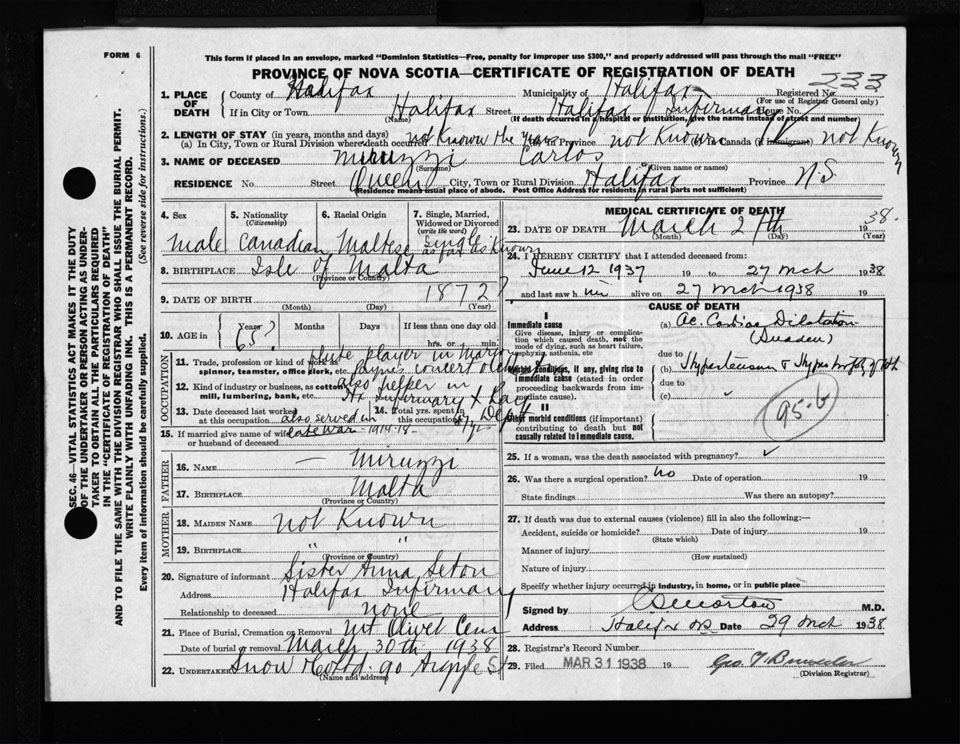 FORM 6
This form if placed in an envelope, marked "Dominion Statistics—Free, penalty for improper use $300," and properly addressed will pass through the mail "FREE"
PROVINCE OF NOVA SCOTIA—CERTIFICATE OF REGISTRATION OF DEATH
233
1. PLACE OF DEATH
County of Halifax Municipality of Halifax Registered No.
(For use of Registrar General only)
If in City or Town Halifax Street Halifax Infirmary House No.
(Name) (If death occurred in a hospital or institution, give the name instead of street and number)
2. LENGTH OF STAY (in years, months and days)
(a) In City, Town or Rural Division where death occurred not Known the years (b) In Province not Known (c) In Canada (if immigrant) not Known
3. NAME OF DECEASED Miruzzi Carlos
(Surname) (Given name or names)
RESIDENCE No. Street Queen City, Town or Rural Division Halifax Province N.S.
Residence means usual place of abode. Post Office Address for residents in rural parts not sufficient)
4. Sex 5. Nationality (Citizenship) 6. Racial Origin 7. Single, Married, Widowed or Divorced (write the word)
Male Canadian Maltese Single as far as Known
8. BIRTHPLACE Isle of Malta
(Province or Country)
9. DATE OF BIRTH 1872?
(Month) (Day) (Year)
10. AGE in Years Months Days If less than one day
65? hrs. or min.
OCCUPATION
11. Trade, profession or kind of work as spinner, teamster, office clerk, etc. flute player in concert
12. Kind of industry or business, as cotton mill, lumbering, bank, etc. also helper in Hx Infirmary
13. Date deceased last worked at this occupation also served in
14. Total yrs. spent in this occupation
15. If married give name of wife or husband of deceased late war - 1914-18-
FATHER
16. Name — Miruzzi
17. Birthplace Malta
(Province or Country)
MOTHER
18. Maiden Name not Known
19. Birthplace " "
(Province or Country)
20. Signature of informant Sister Anna Seton
Address Halifax Infirmary
Relationship to deceased none
21. Place of Burial, Cremation or Removal Mt Olivet Cem
Date of burial or removal March 30th 1938
22. Undertaker Snow & Co Ltd. 90 Argyle St
(Name and address)
MEDICAL CERTIFICATE OF DEATH
23. DATE OF DEATH March 27th 1938.
(Month) (Day) (Year)
24. I HEREBY CERTIFY that I attended deceased from:
June 12 1937 19 to 27 Mch 1938
and last saw him alive on 27 Mch 1938 19
CAUSE OF DEATH
I
Immediate cause
Give disease, injury or complication which caused death, not the mode of dying, such as heart failure, asphyxia, asthenia, etc
(a) Ac Cardiac Dilatation
(Sudden)
due to
Morbid conditions, if any, giving rise to immediate cause (stated in order proceeding backwards from immediate cause)
(b) Hypertension
due to
(c) "
95-b
II
Other morbid conditions (if important) contributing to death but not causally related to immediate cause.
25. If a woman, was the death associated with pregnancy?
26. Was there a surgical operation? no Date of operation 19
State findings Was there an autopsy?
27. If death was due to external causes (violence) fill in also the following:—
Accident, suicide or homicide? Date of injury 19
(State which)
Manner of injury
(How sustained)
Nature of injury
Specify whether injury occurred in industry, in home, or in public place
Signed by M.D.
Address Halifax NS Date 29 Mch 1938
28. Registrar's Record Number
29. Filed MAR 31 1938 19
(Division Registrar)
SEC. 46—VITAL STATISTICS ACT MAKES IT THE DUTY
OF THE UNDERTAKER OR PERSON ACTING AS UNDER-
TAKER TO OBTAIN ALL THE PARTICULARS REQUIRED
IN THE "CERTIFICATE OF REGISTRATION OF DEATH"
AND TO FILE THE SAME WITH THE DIVISION REGISTRAR WHO SHALL ISSUE THE BURIAL PERMIT.
WRITE PLAINLY WITH UNFADING INK. THIS IS A PERMANENT RECORD.
Every item of information should be carefully supplied. (See reverse side for instructions.)